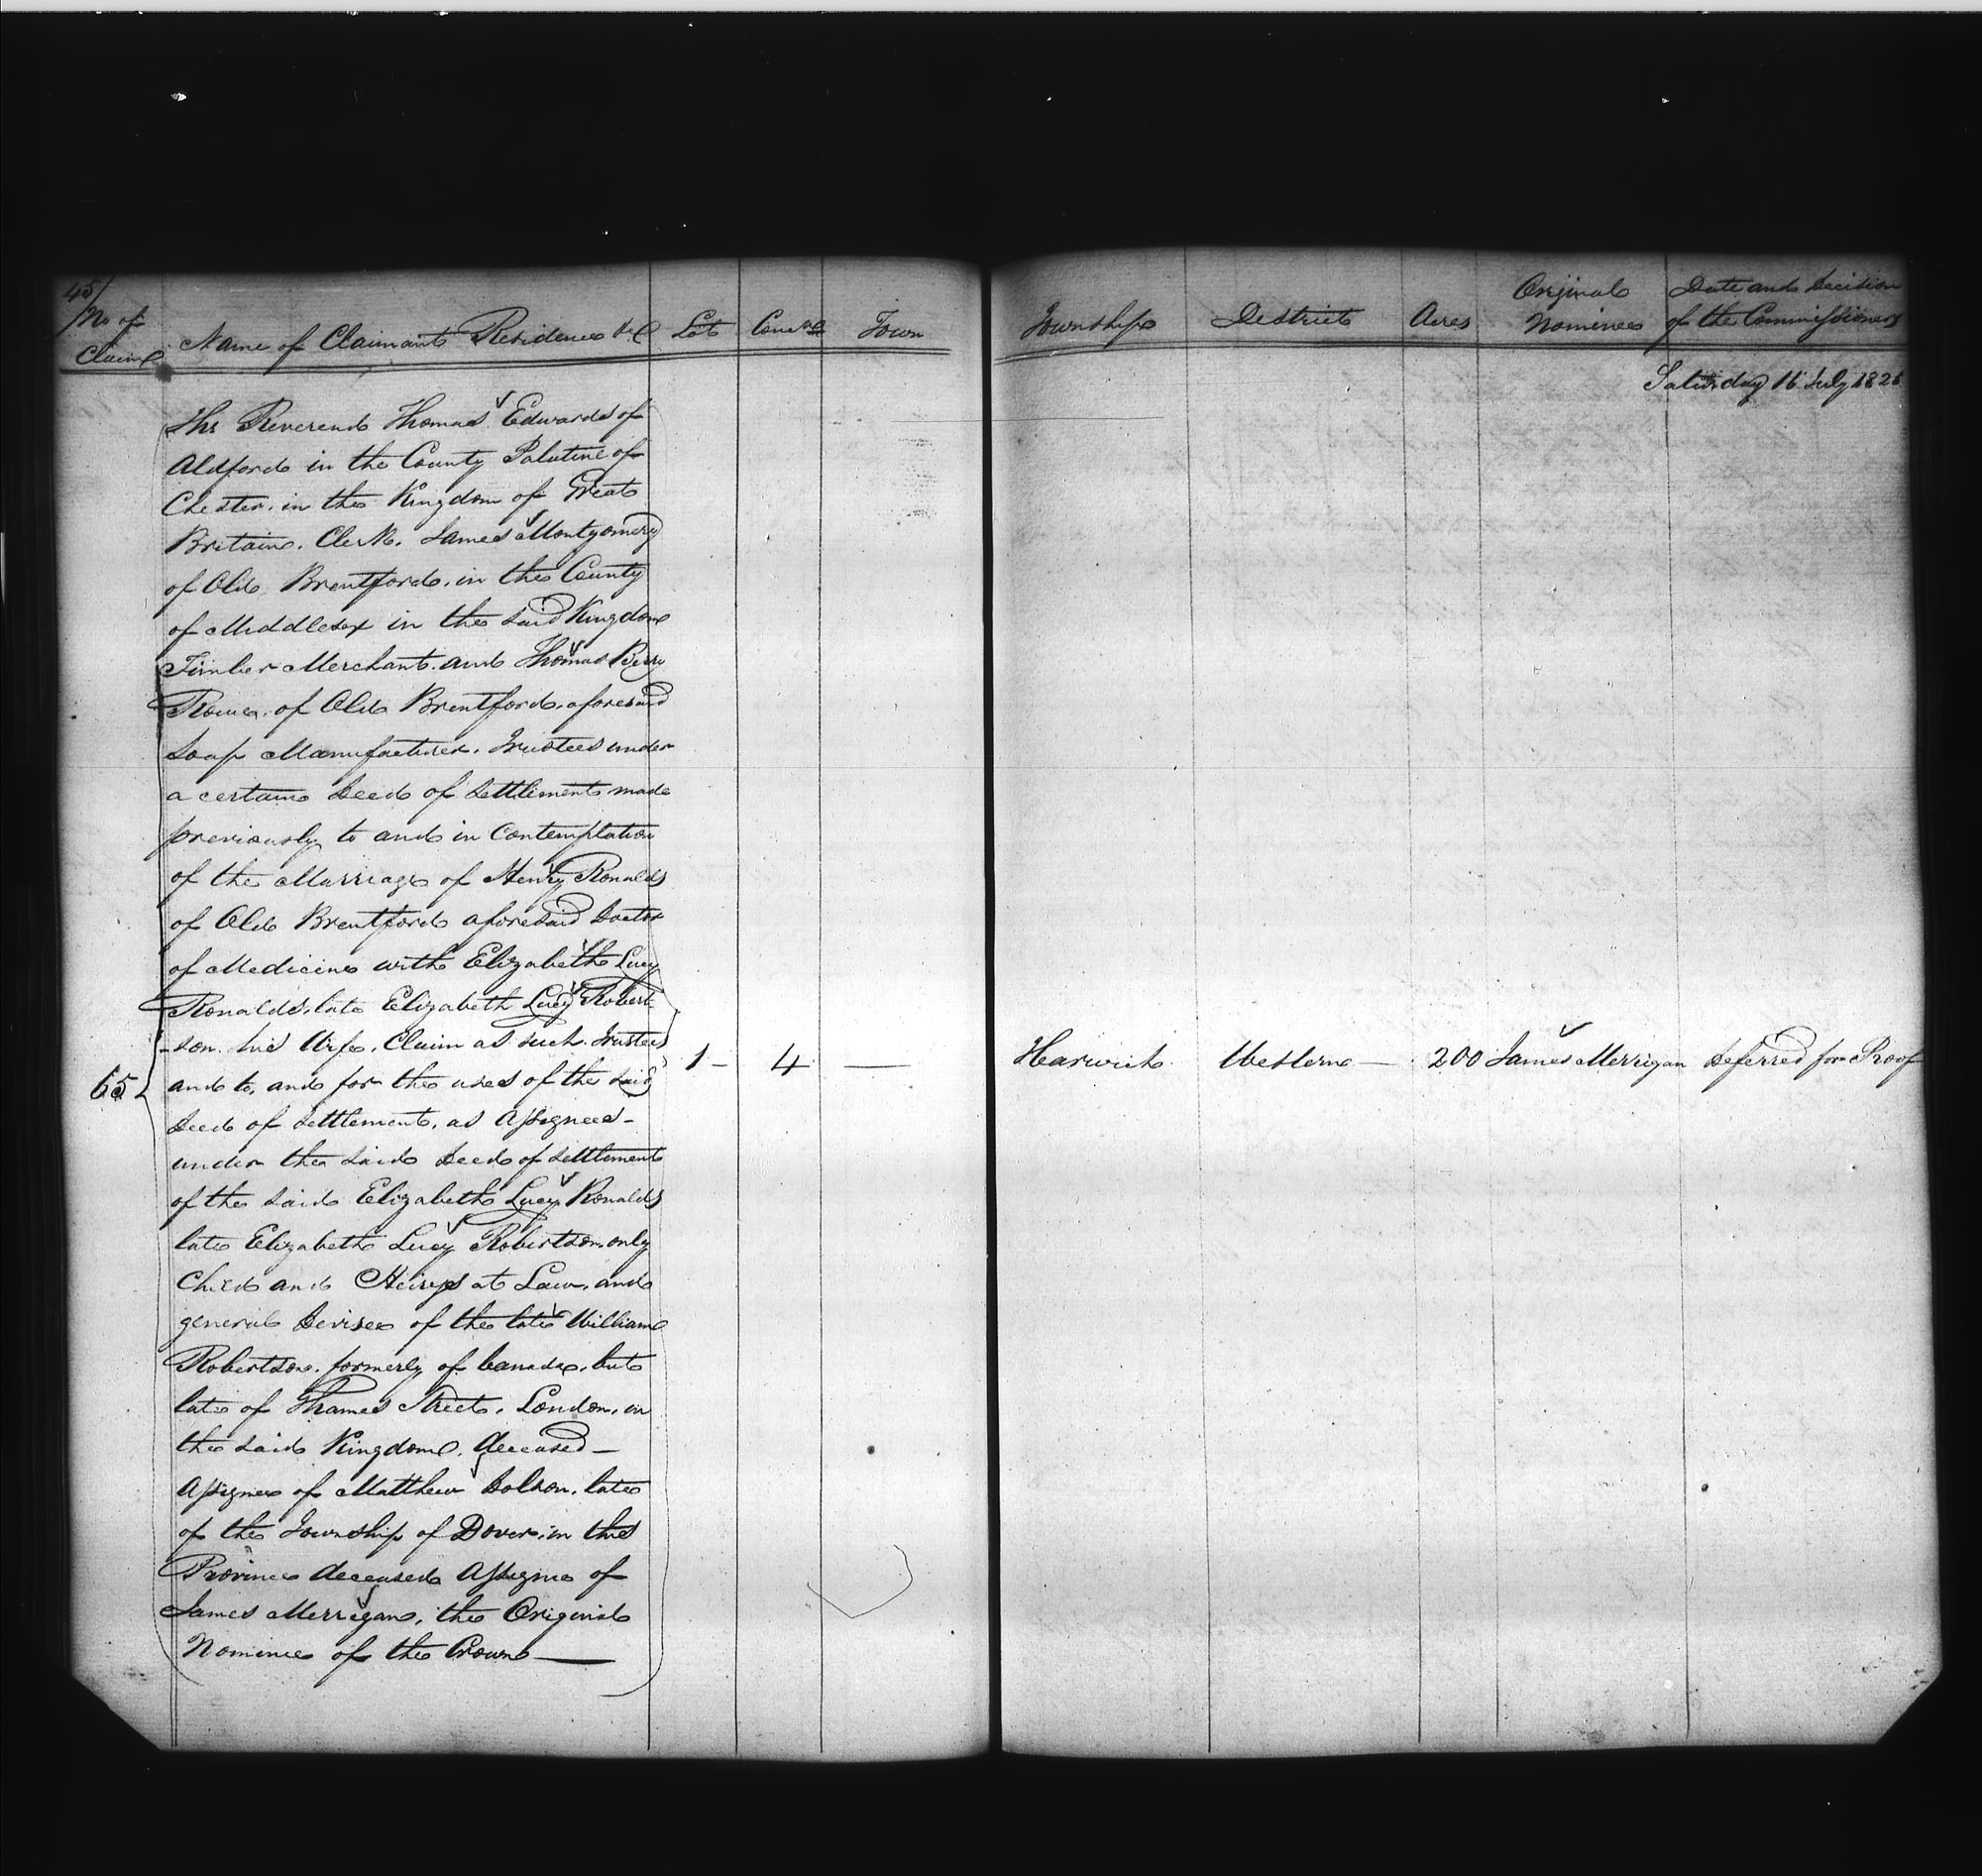 45/
No of
Claim
Name of Claimants Residence &c
Lot
Conc
Town
Township
District
Acres
Original
Nominee
Date and Decision
of the Commissioners
Saturday 16 July 182
The Reverend Thomas Edwards of
Aldford in the County Palatine of
Chester, in the Kingdom of Great
Britain. Clerk. James Montgomery
of Old Brentford, in the County
of Middlesex in the said Kingdom
Timber Merchant. and Thomas Berry
Rowe, of Old Brentford, aforesaid
Soap Manufacturer. Trustees under
a certain Deed of Settlement made
previously to and in Contemplation
of the Marriage of Henry Ronalds
of Old Brentford aforesaid Doctor
of Medicine with Elizabeth Lucy
Ronalds, late Elizabeth Lucy Robert-
-son his Wife, Claim as such Trustees
and to, and for the uses of the said
Deed of Settlement, as Assignees -
under the said Deed of Settlement
of the said Elizabeth Lucy Ronalds
late Elizabeth Lucy Robertson, only
Child and Heiress at Law, and
general Devisee of the late William
Robertson, formerly of Canada, but
late of Thames Street, London, in
the said Kingdom, deceased -
Assignee of Matthew Dolson, late
of the Township of Dover, in this
Province deceased Assignee of
James Merrigan, the Original
Nominee of the Crown —
65
1 -
4
—
Harwich
Western —
200
James Merrigan
Deferred for Proof